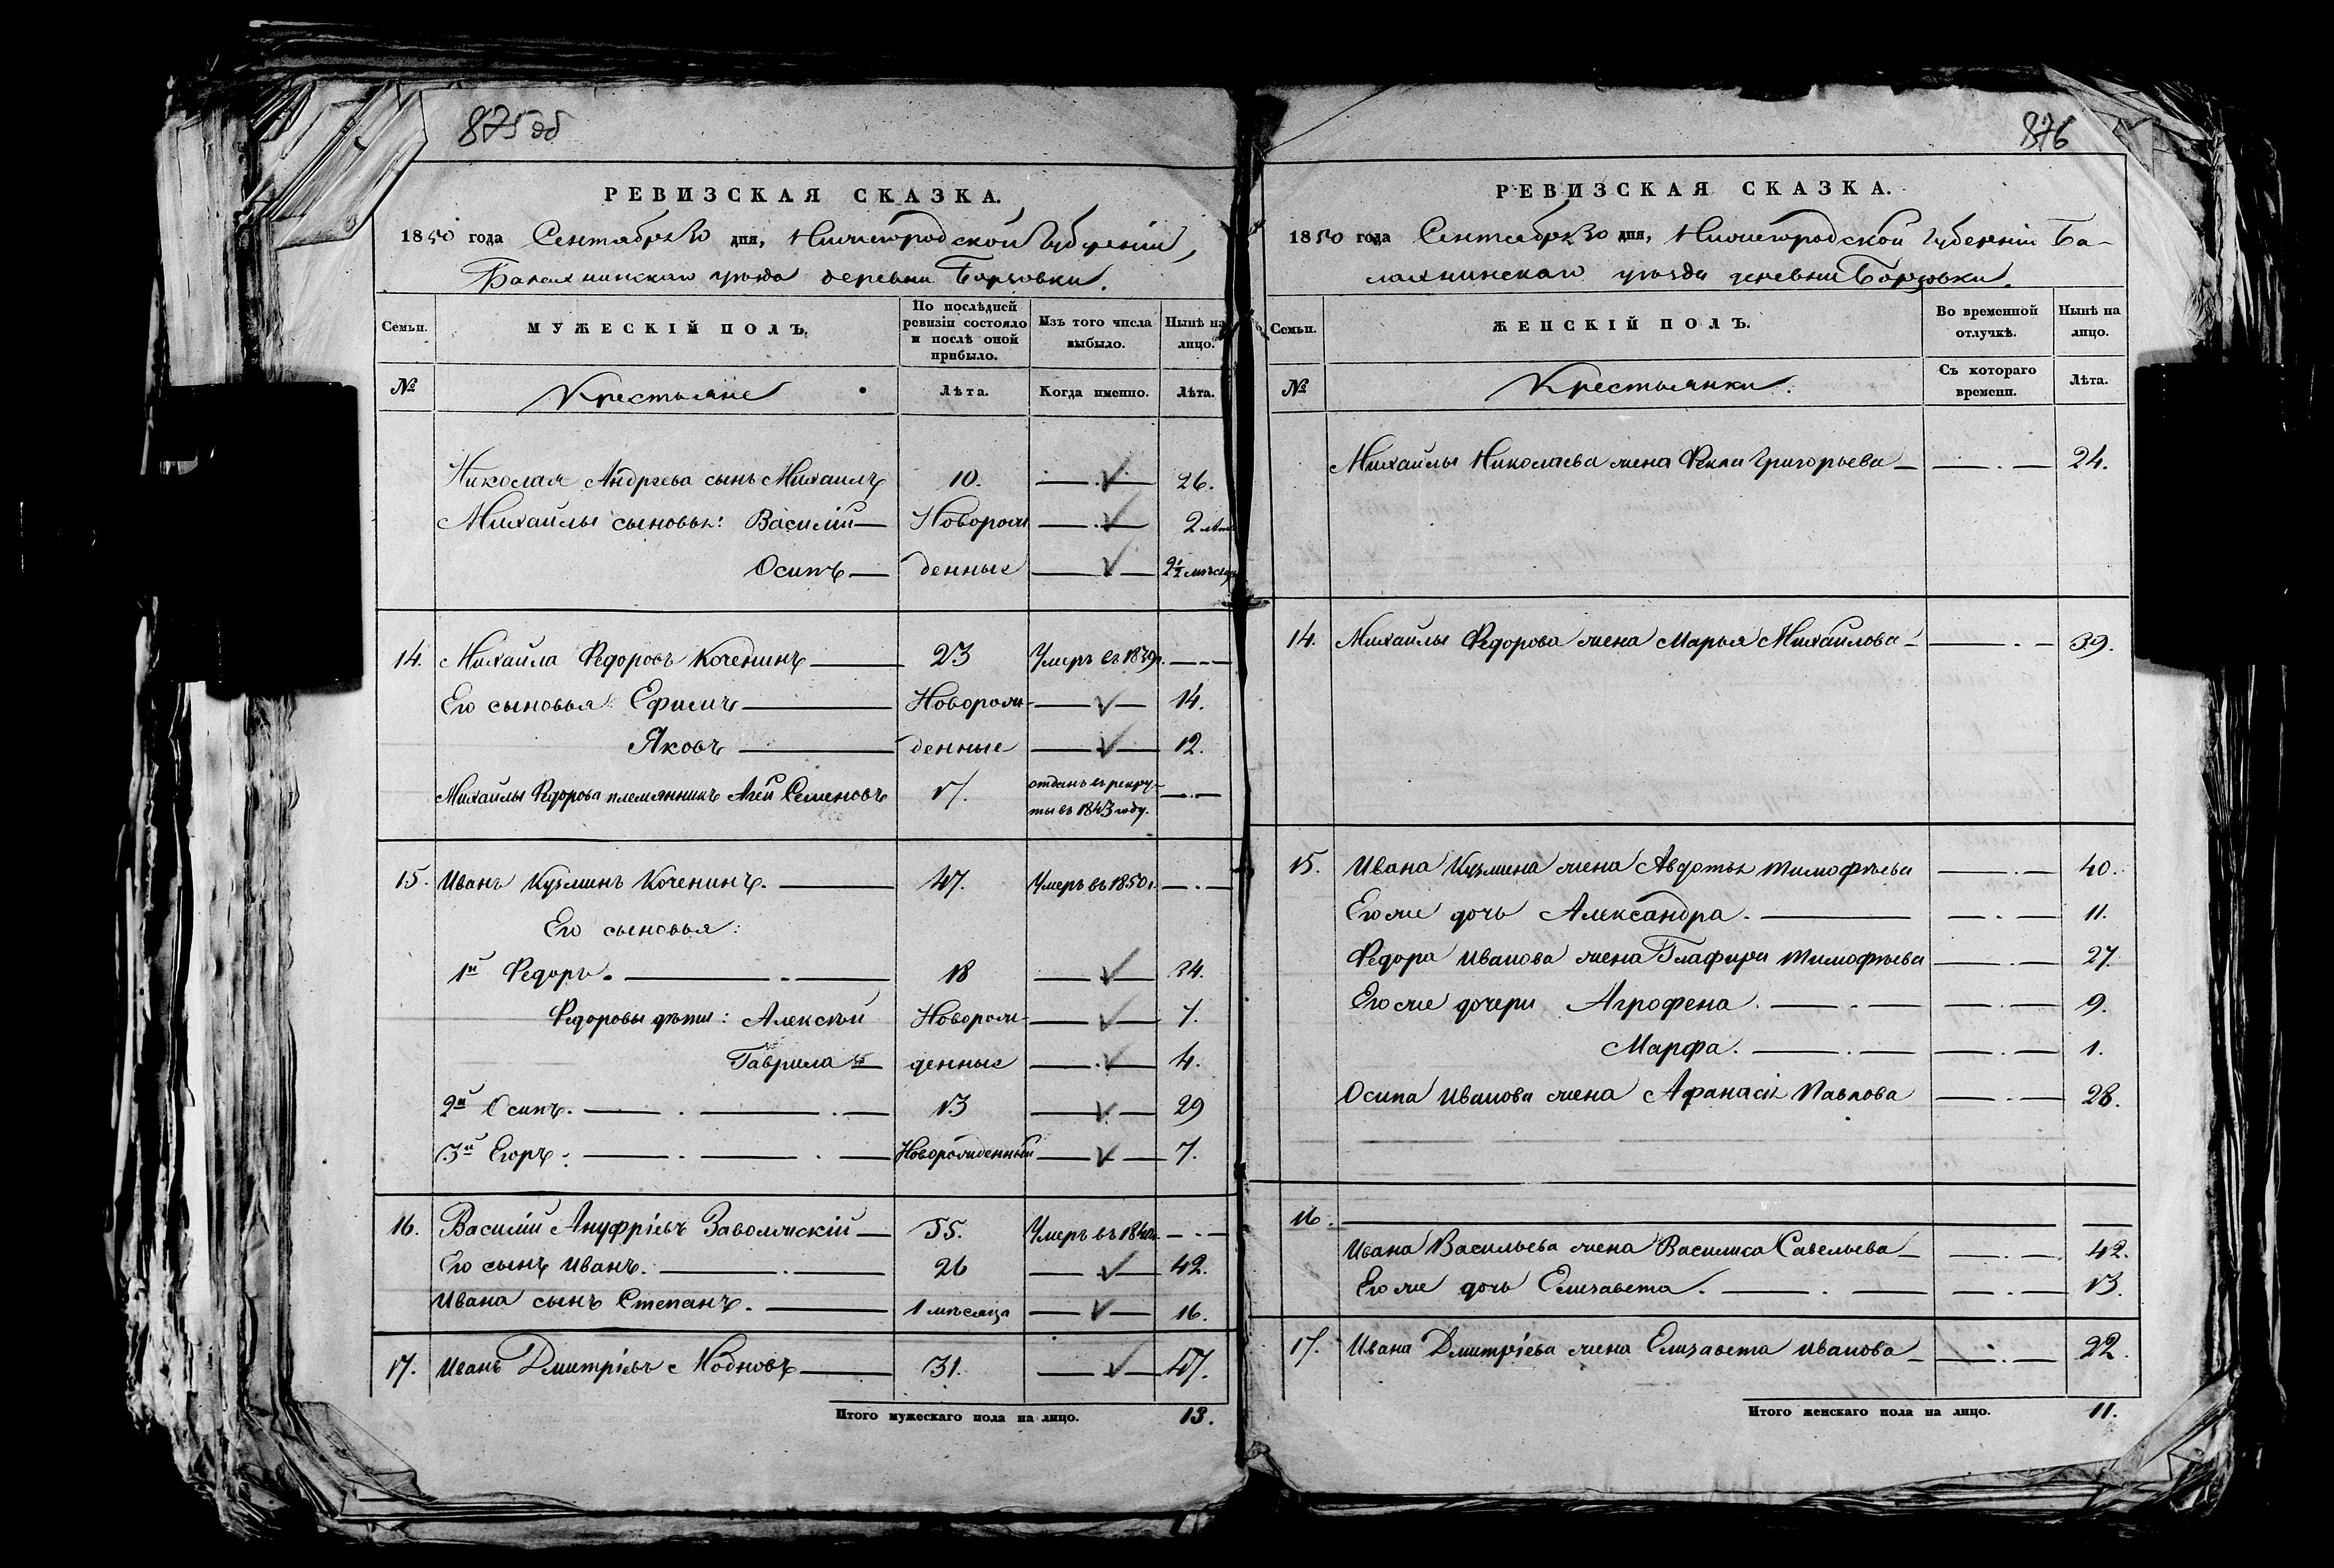 875 об
РЕВИЗСКАЯ СКАЗКА.
1850 года Сентября 30 дня, Нижегородской Губерніи,
Балахнинскаго уѣзда деревни Борзовки.
Семьи.
МУЖЕСКІЙ ПОЛЪ.
По послѣдней ревизіи состояло и послѣ оной прибыло.
Изъ того числа выбыло.
Нынѣ на лицо.
№ Крестьяне Лѣта. Когда именно. Лѣта.
Николая Андреева сынъ Михаилъ 10. 26.
Михайлы сыновья: Василій Новорож 2 лѣт
Осипъ денные 2½ мѣсяц
14. Михайла Федоровъ Коченинъ 23 Умеръ въ 1839г.
Его сыновья Ефимъ Новорож- 14.
Яковъ денные 12.
Михайлы Федорова племянникъ Агей Семеновъ 17. отданъ въ рекру-
ты въ 1843 году.
15. Иванъ Кузминъ Коченинъ. 47. Умеръ въ 1850г.
Его сыновья:
1й Федоръ. 18 34.
Федоровы дѣти: Алексѣй Новорож- 7.
Гаврила денные 4.
2й Осипъ. 13 29
3й Егоръ. Новорожденный 7.
16. Василій Ануфріевъ Заволжскій 55. Умеръ въ 1840г.
Его сынъ Иванъ. 26 42.
Ивана сынъ Степанъ. 1 мѣсяца 16.
17. Иванъ Дмитріевъ 31. 47.
Итого мужескаго пола на лицо. 13.
876
РЕВИЗСКАЯ СКАЗКА.
1850 года Сентября 30 дня, Нижегородской Губерніи Ба-
лахнинскаго уѣзда деревни Борзовки.
Семьи.
ЖЕНСКІЙ ПОЛЪ.
Во временной отлучкѣ.
Нынѣ на лицо.
№ Крестьянки. Съ котораго времени. Лѣта.
Михайлы Николаева жена Фекла Григорьева 24.
14. Михайлы Федорова жена Марья Михайлова 39.
15. Ивана Кузмина жена Авдотья Тимофѣева 40.
Его же дочь Александра. 11.
Федора Иванова жена Глафира Тимофѣева 27.
Его же дочери Агрофена. 9.
Марфа. 1.
Осипа Иванова жена Афанасія Павлова 28.
16.
Ивана Васильева жена Василиса Савельева 42.
Его же дочь Елизавета. 13.
17. Ивана Дмитріева жена Елизавета Иванова 22.
Итого женскаго пола на лицо. 11.